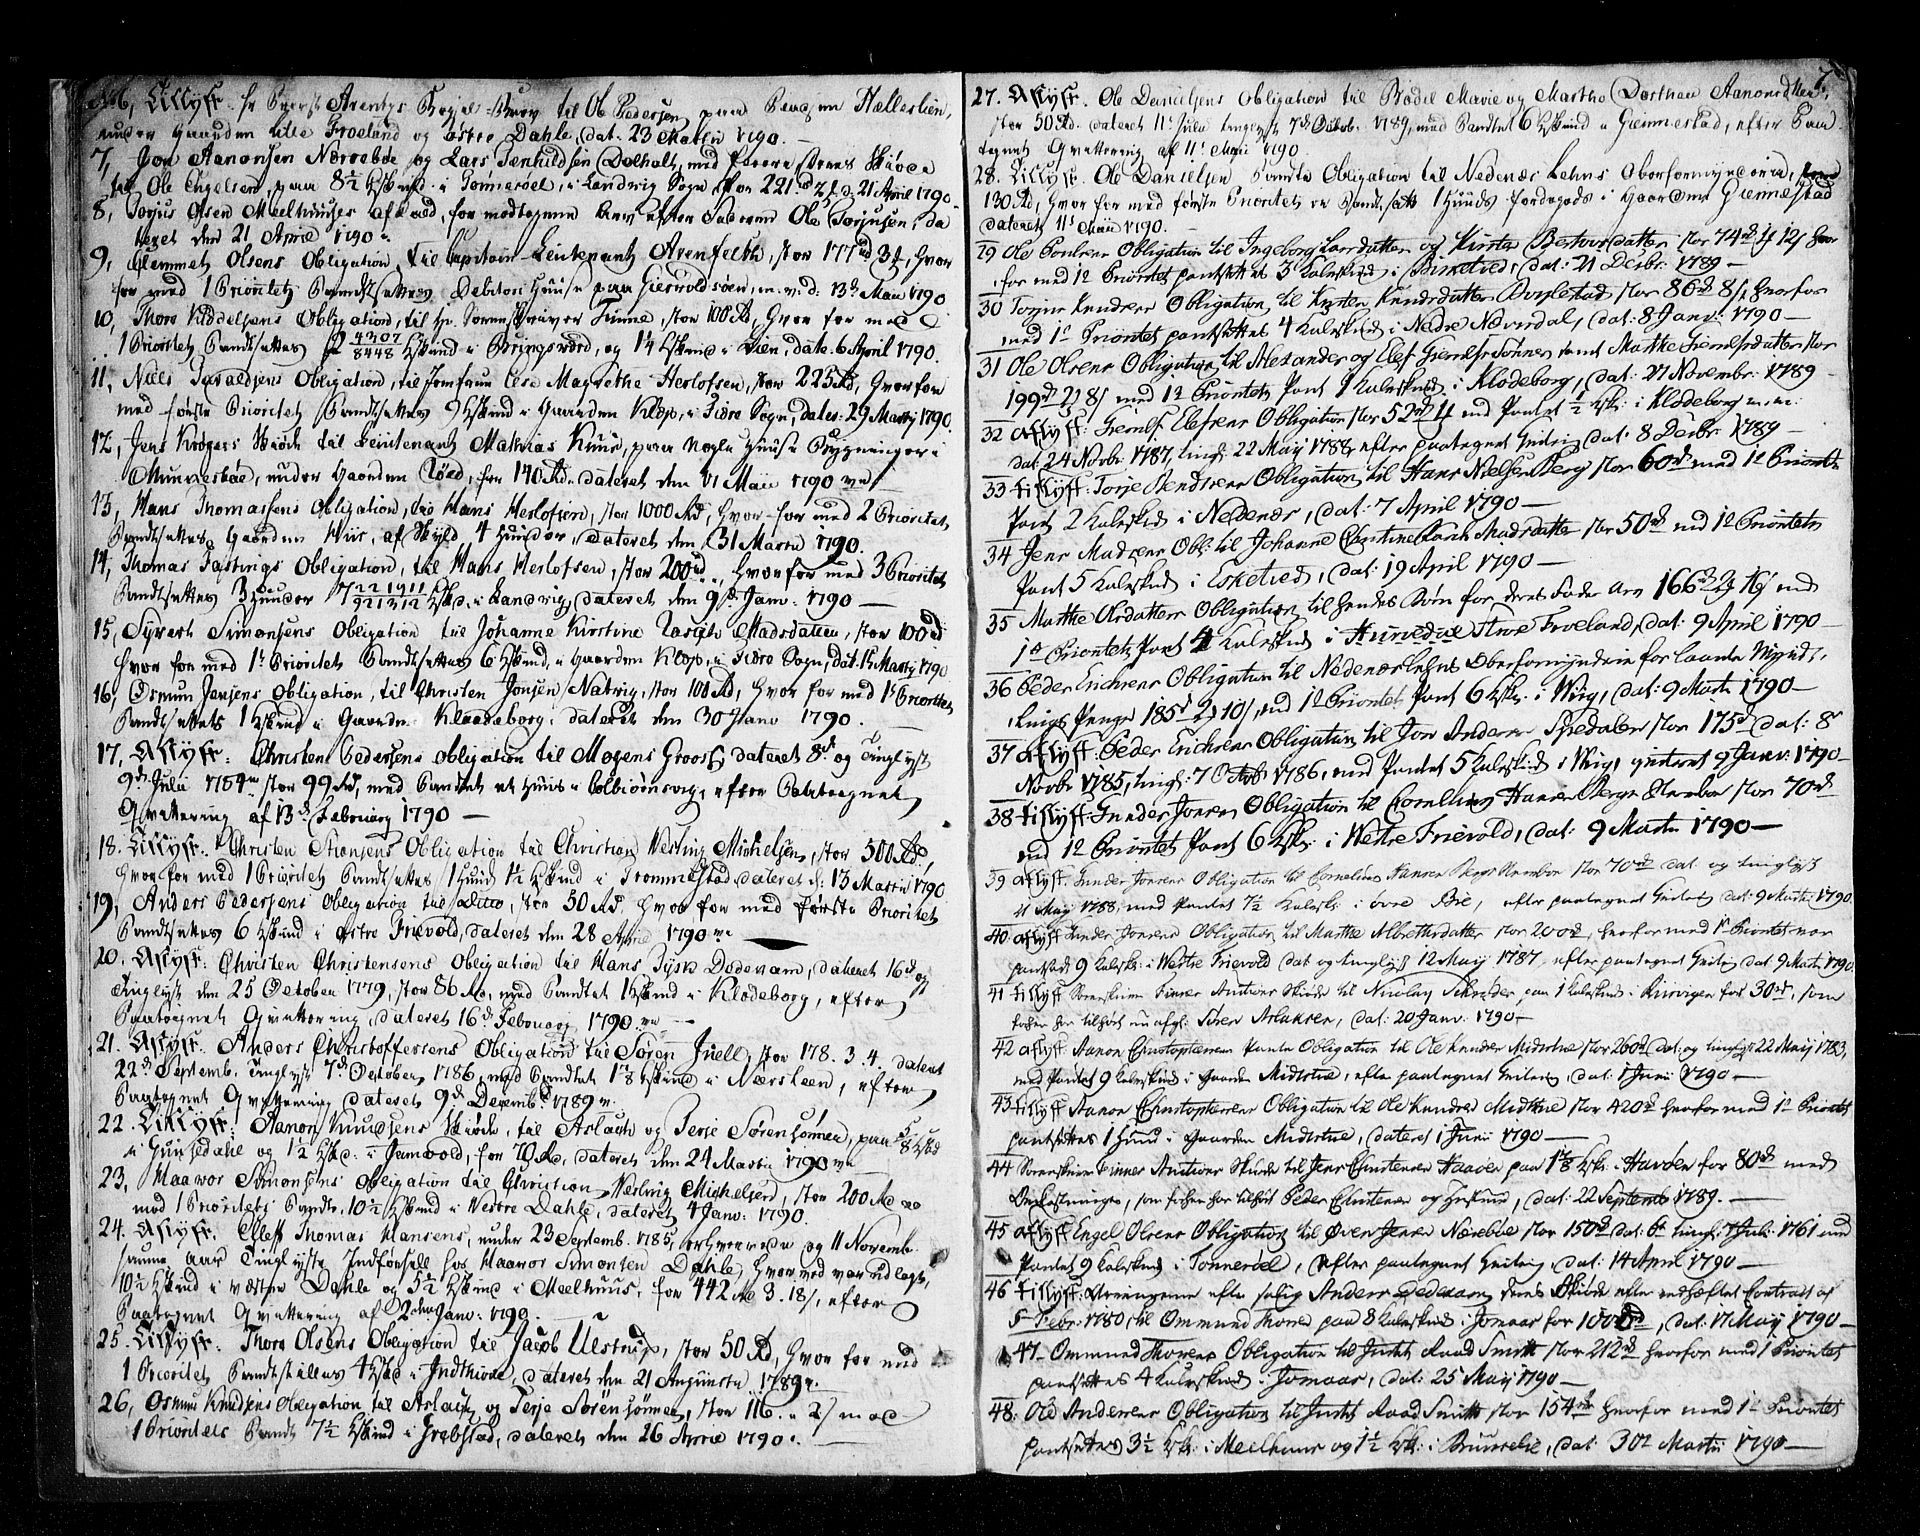 No 6, Tillyst: Hr Arentz Bøgsel-Brev til Ole Pedersen paa Pladsen Hellerslien,
under Gaarden lille Froeland og østre Dahle, dat: 23 Martii 1790.
7, Jon Aanonsen Nærsebøe og Lars Tenhildsen Dolholt, med Skiøde
til Ole Engelsen, paa 8½ Kskind i Tønnesøel, i Landvig Sogn, for 221 rd 21 April 1790.
8, Torjus Olsen Meelhuuses afkald, for modtagene Arv efter Faderen Ole Torjusen, da
teret den 21 April 1790.
9, Clemmet Olsens Obligation, til Capitain-Leutenant Arenfeldt, stor 177 rd 3 , hvor
for med 1 Prioritet Pandtsættes Debitors Huuse paa Giervoldsøen, m. v. d: 13de Maii 1790
10, Thore Kiddelsens Obligation, til Hr. Sorenskriver Finne, stor 100 Rd, hvor for med
1 Prioritet Pandtsættes 2 4307/8448 Kskind i Bringsværd, og 1¼ Kskind i Vien, date. 6 April 1790.
11, Niels Tavaldsens Obligation, til Jomfrue Lese Magrethe Herlofsen, stor 225 Rd, hvor for
med første Prioritet Pandtsættes 9 Kskind i Gaarden Klep, i Fiære Sogn, dater: 29 Martj 1790.
12, Jens Krøgers Skiøde til Leutenant Mathias Kruse, paa nogle Huuse Bygninger i
Munkesbøe, under Gaarden Løed, for 140 Rd. dateret den 11 Maii 1790
13, Hans Thomassens Obligation, til Hans Herlofsen, stor 1000 Rd, hvor for med 2 Prioritet
Pandtsættes Gaarden Wiir, af Skyld 4 Huuder, dateret den 31 Martii 1790.
14, Thomas Fastings Obligation, til Hans Herlofsen, stor 200 rd, hvorfor med 3 Prioritet
Pandtsættes 3 Huuder 7 221911/921312 Ksk. i Landvig, dateret den 9de Janv: 1790 —
15, Syvert Simonsens Obligation til Johanne Kirstine Madsdatter, stor 100 rd
hvor for med 1te Prioritet Pandtsættes 6 Kskind, i Gaarden Klep, i Fiære Sogn, dat. 15 Martj 1790
16, Osmun Jensens Obligation, til Christen Jonsen Natvig, stor 100 Rd, hvor for med 1te Prioritet
Pandtsættes 1 Kskind i Gaarden Klaadeborg, dateret den 30 Janv 1790.
17, Aflyst: Christen Pedersens Obligation til Mogens Groos, dateret 8de og Tinglyst
9de Julii 1784 stor 99 Rd, med Pandtet et Huus i Colbiørnsvig, efter Paategnet
Qvittering af 13de Februarj 1790 —
18. Tillyst: Christen Obligation til Christian Vesling Michelsen, stor 500 Rd,
hvor for med 1 Prioritet Pandtsættes 1 Huud 1½ Kskind i Trommestad dateret d: 13 Martii 1790
19, Anders Pedersens Obligation til ditto, stor 50 Rd, hvor for med første Prioritet
Pandtsættes 6 Kskind i østre Frievold, dateret den 28 April 1790
20. Aflyst: Christen Christensens Obligation til Hans Tysk Dødevam, dateret 16de og
Tinglyst den 25 October 1779, stor 86 Rd, med Pandtet 1 Kskind i Klodeborg, efter
Paategnet Qvittering dateret 16de Februarj 1790
21. Aflyst: Anders Christoffersens Obligation til Søren Juell, stor 178. 3. 4. dateret
22de Septemb. Tinglyst 7de October 1786, med Pandtet 1⅛ Kskind i Nærsteen, efter
Paategnet Qvittering dateret 9de Decemb: 1789.
22. Tillyst: Aanon Knudsens Skiøde, til Aslach og Terje Sørensønner, paa 5/8 Kskd
i Gunsedahl og 1½ Ksk: i Jomvold, for 70 Rd, dateret den 24 Martii 1790
23, Haavor Simonsens Obligation til Christian Vesling Michelsen, stor 200 Rd
med 1 Prioritets Pandt, 10½ Kskind i Vestre Dahle, dateret 4 Janv: 1790.
24. Aflyst: Eleff Thomas Hansens, under 23 Septemb. 1785, erhvervede og 11 Novemb.
samme aar Tinglyste Indførsell hos Haavor Simonsen Dahle, hvor ved var udlagt,
10½ Kskind i væstre Dahle og 5½ Kskind i Meelhuus, for 442 rd 3. 18 s, efter
Paategnet Qvittering af 2den Janv: 1790.
25. Tillyst: Thore Olsens Obligation til Jacob Ulstrup, stor 50 Rd, hvor for med
1 Prioritet Pandtstilles 4 Ksk i Indthiore, dateret den 21 Augusti 1789.
26, Osmun Knudsens Obligation til Aslach og Terje Sørensønner, stor 116. " 2 s med
1 Prioritets Pandt 7½ Kskind i Grebstad, dateret den 26 April 1790.
7
27. Aflyst. Ole Danielsens Obligation til Bodil Marie og Martha Dorthea Aanonsdttr.,
stor 50 Rd. dateret 11te Julii tinglyst 7de Octob. 1789, med Pandtet 6 Kskind i Giennestad, efter Paa
tegnet Qvittering af 11te Maii 1790.
28. Tillyst. Ole Danielsen Pandte Obligation til Nedenæs Lehns Oberformynderie, stor
130 Rd, hvor for med første Prioritet er Pandtsatt 1 Huuds Jordegods i Gaarden Giennestad
dateret 11te Maii 1790.
29 Ole Poulsens Obligation til Ingeborg Larsdatter og Kirsten Bertorsdatter stor 74 rd 1 12 s hvor
for med 1te Prioritet pantsættes 3 Kalvskind i Birketved, dat: 21 Decbr: 1789 —
30 Torjus Knudsens Obligation til Kirsten Knudsdatter Boylestad stor 86 rd 8 s, hvorfor
med 1te Prioritet pantsættes 4 Kalvskind i Nedre Næverdal, dat: 8 Janv: 1790 —
31 Ole Olsens Obligation til Alexander og Elef Gierulfs Sønner samt Marthe Gierulfsdatter stor
199 rd 2 8 s med 1te Prioritet Pant 9 Kalvskind i Klodeborg, dat: 27 Novembr: 1789
32 Aflyst: Gierulf Elefsens Obligation stor 52 rd 1 med Pantet ½ Ksk: i Klodeborg m. m:
dat: 24 Novbr: 1787, tingl: 22 May 1788, efter paategnet Qvitering dat: 8 Decbr: 1789 —
33 Tillyst: Torje Bendtsens Obligation til Hans Nielsen Berg stor 60 rd med 1te Prioritets
Pant 2 Kalvskind i Nedenæs, dat: 7 April 1790 —
34 Jens Madsens Obl: til Johanne Christine Madsdatter stor 50 rd med 1te Prioritets
Pant 5 Kalvskind i Esketved, dat: 19 April 1790 —
35 Marthe Olsdatters Obligation til hendes Børn for deres Fader Arv 166 rd 2 16 s med
1te Prioritets Pant 4 Kalvskind i Froeland, dat: 9 April 1790 —
36 Peder Erichsens Obligation til Nedenæs Lehns Oberformynderie for laante Myndt-
lings Penge 185 rd 2 10 s, med 1te Prioritets Pant 6 Ksk: i Wiig, dat: 9 Marti 1790 —
37 Aflyst: Peder Erichsens Obligation til Jon Andersen Spedalen stor 175 rd dat: 8de
Novbr 1785, tingl: 7 Octob: 1786, med Pantet 5 Kalvskind i Wiig, qviteret 9 Janv: 1790 —
38 Tillyst: Gunder Jonsens Obligation til Cornelius Hansen Bergs stor 70 rd
med 1te Prioritets Pant 6 Ksk: i Westre Frievold, dat: 9 Marti 1790 —
39 Aflyst: Gunder Jonsens Obligation til Cornelius Hansen Bergs stor 70 rd dat: og tinglyst
21 May 1788, med Pantet 7½ Kalvsk: i øvre Bie, efter paategnet Qvitering dat: 9 Marti 1790
40 Aflyst Gunder Jonsens Obligation til Marthe Albrethsdatter stor 200 rd, hvorfor med 1te Prioritet var
pantsatt 9 Kalvsk: i Westre Frievold dat og tinglyst 12 May 1787, efter paategnet Qvitering dat: 9 Marti 1790
41 Tillyst Sorenskriver Finnes Auctions Skiøde til Nicolay Schrøder paa 1 Kalvskind i Kurvigen for 30 rd, som
forhen har tilhørt nu afg: Søren Aslaksen, dat: 20 Janv: 1790 —
42 Aflyst Aanon Christophersens Pante Obligation til Ole Knudsen Midstue stor 260 rd dat: og tinglyst 22 May 1783,
med Pantet 9 Kalvskind i Gaarden Midstue, efter paategnet Qvitering, dat: 1 Junii 1790 —
43 Tillyst Aanon Christophersens Obligation til Ole Knudsen Midstue stor 420 rd hvorfor med 1te Prioritet
pantsættes 1 Huud i Gaarden Midstue, dateret 1 Junii 1790 —
44 Sorenskriver Finnes Auctions Skiøde til Jens Christensen Haaver paa 1⅛ Ksk: i Haaver for 80 rd med
Omkostninger, som forhen har tilhørt Peder Christensen og Hustrue, dat: 22 Septemb 1789 —
45 Aflyst Engel Olsens Obligation til Øven Jensen Næsebøe stor 150 rd dat: 6te tingl: 7 Julii 1761 med
Pantet 9 Kalvskind i Tønnesøel, efter paategnet Qvitering, dat: 14 April 1790 —
46 Tillyst: Arvingerne efter salig Anders Dedekam deres Skiøde efter vedhæftet Contract af
5 Febr: 1780, til Ommund Thores paa 8 Kalvskind i Jomaas for 1000 rd, dat: 17 May 1790 —
47 Ommund Thoresens Obligation til Justits Raad Smith stor 212 rd hvorfor med 1 Prioritet
pantsættes 4 Kalvskind i Jomaas, dat: 25 May 1790 —
48: Ole Andersens Obligation til Justits Raad Smith stor 154 rd hvorfor med 1te Prioritet
pantsættes 3½ Ksk: i Meelhuus og 1½ Ksk: i Brunselie, dat: 30te Martii 1790 —